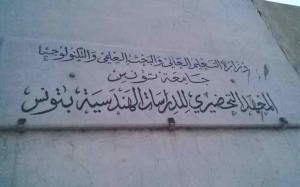 وزارة التعليم العالي والبحث العلمي والتكنولوجيا
جامعة تونس
المعهد التحضيري للدراسات الهندسية بتونس